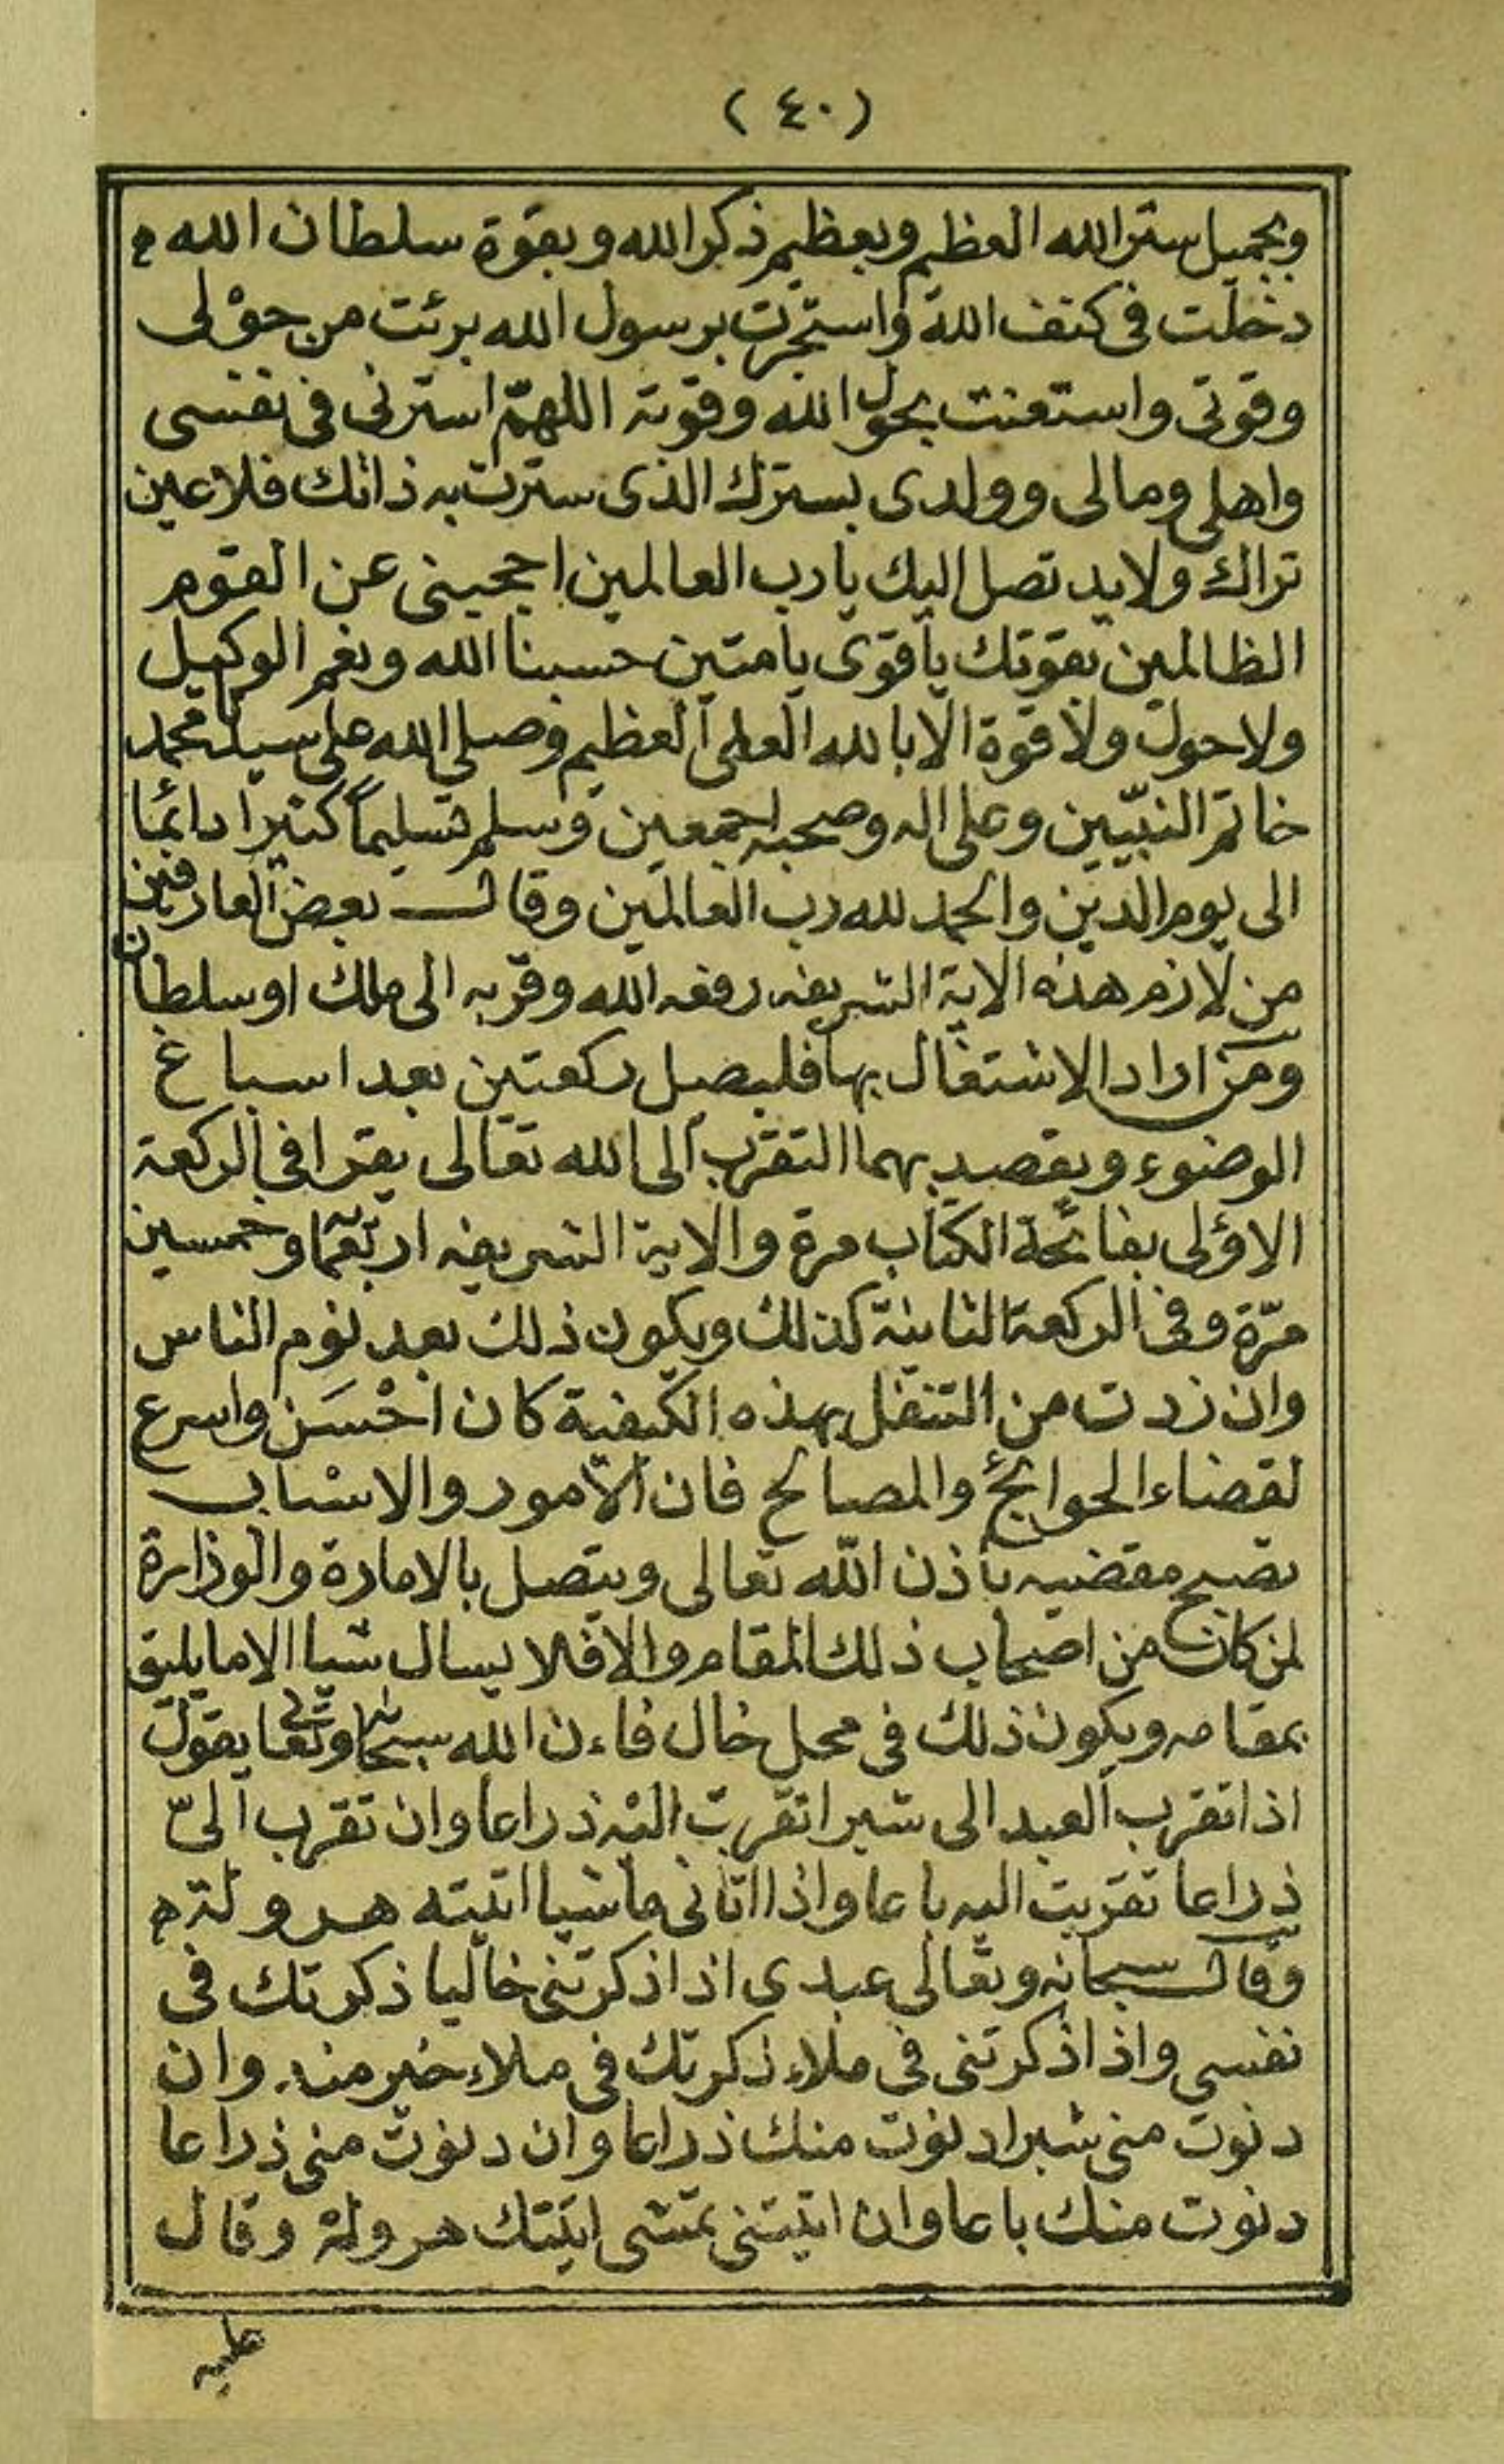 (٤٠)
وبجميل ستر الله العظيم وبعظيم ذكر الله وبقوة سلطان الله
دخلت في كنف الله واستجرت برسول الله برئت من حوْلى
وقوتى واستعنت بحول الله وقوته اللهمّ استرنى فى نفسى
واهلى ومالى وولدى بسترك الذى سترت به ذاتك فلا عين
تراك ولا يد تصل اليك يا رب العالمين احجبنى عن القوم
الظالمين بقوتك يا قوى يا متين حسبنا الله ونعم الوكيل
ولا حول ولا قوة الا بالله العلى العظيم وصلى الله على سيدنا محمد
خاتم النبيّين وعلى اله وصحبه اجمعين وسلم تسليماً كثيرا دائما
الى يوم الدين والحمد لله رب العالمين وقال بعض العارفين
من لازم هذه الاية الشريفه رفعه الله وقربه الى ملك او سلطان
ومن اراد الاشتغال بها فليصل ركعتين بعد اسباغ
الوضوء ويقصد بهما التقرب الى الله تعالى يقرا فى الركعة
الاولى بفاتحة الكتاب مرة والاية الشريفه اربعما وخمسين
مرّة وفى الركعة الثانية كذلك ويكون ذلك بعد نوم الناس
وان زدت من التنفل بهذه الكيفية كان احْسَن واسرع
لقضاء الحوائج والمصالح فان الامور والاسباب
تصبح مقضيه باذن الله تعالى ويتصل بالامارة والوزارة
لمن كان من اصحاب ذلك المقام والا فلا يسال شيا الا ما يليق
بمقامه ويكون ذلك فى محل خال فاءن الله سبحانه وتعالى يقول
اذا تقرب العبد الى شبرا تقربت اليْه ذراعا وان تقرب الىّ
ذراعا تقربت اليه باعا واذا اتانى ماشيا اتيته هرولة
وقال سبحانه وتعالى عبدى اذا ذكرتنى خاليا ذكرتك فى
نفسى واذا ذكرتنى فى ملاء ذكرتك فى ملاء خير منه وان
دنوت منى شبرا دنوت منك ذراعا وان دنوت منى ذراعا
دنوت منك باعا وان اتيتنى تمشى اتيتك هرولة وقال
عليه